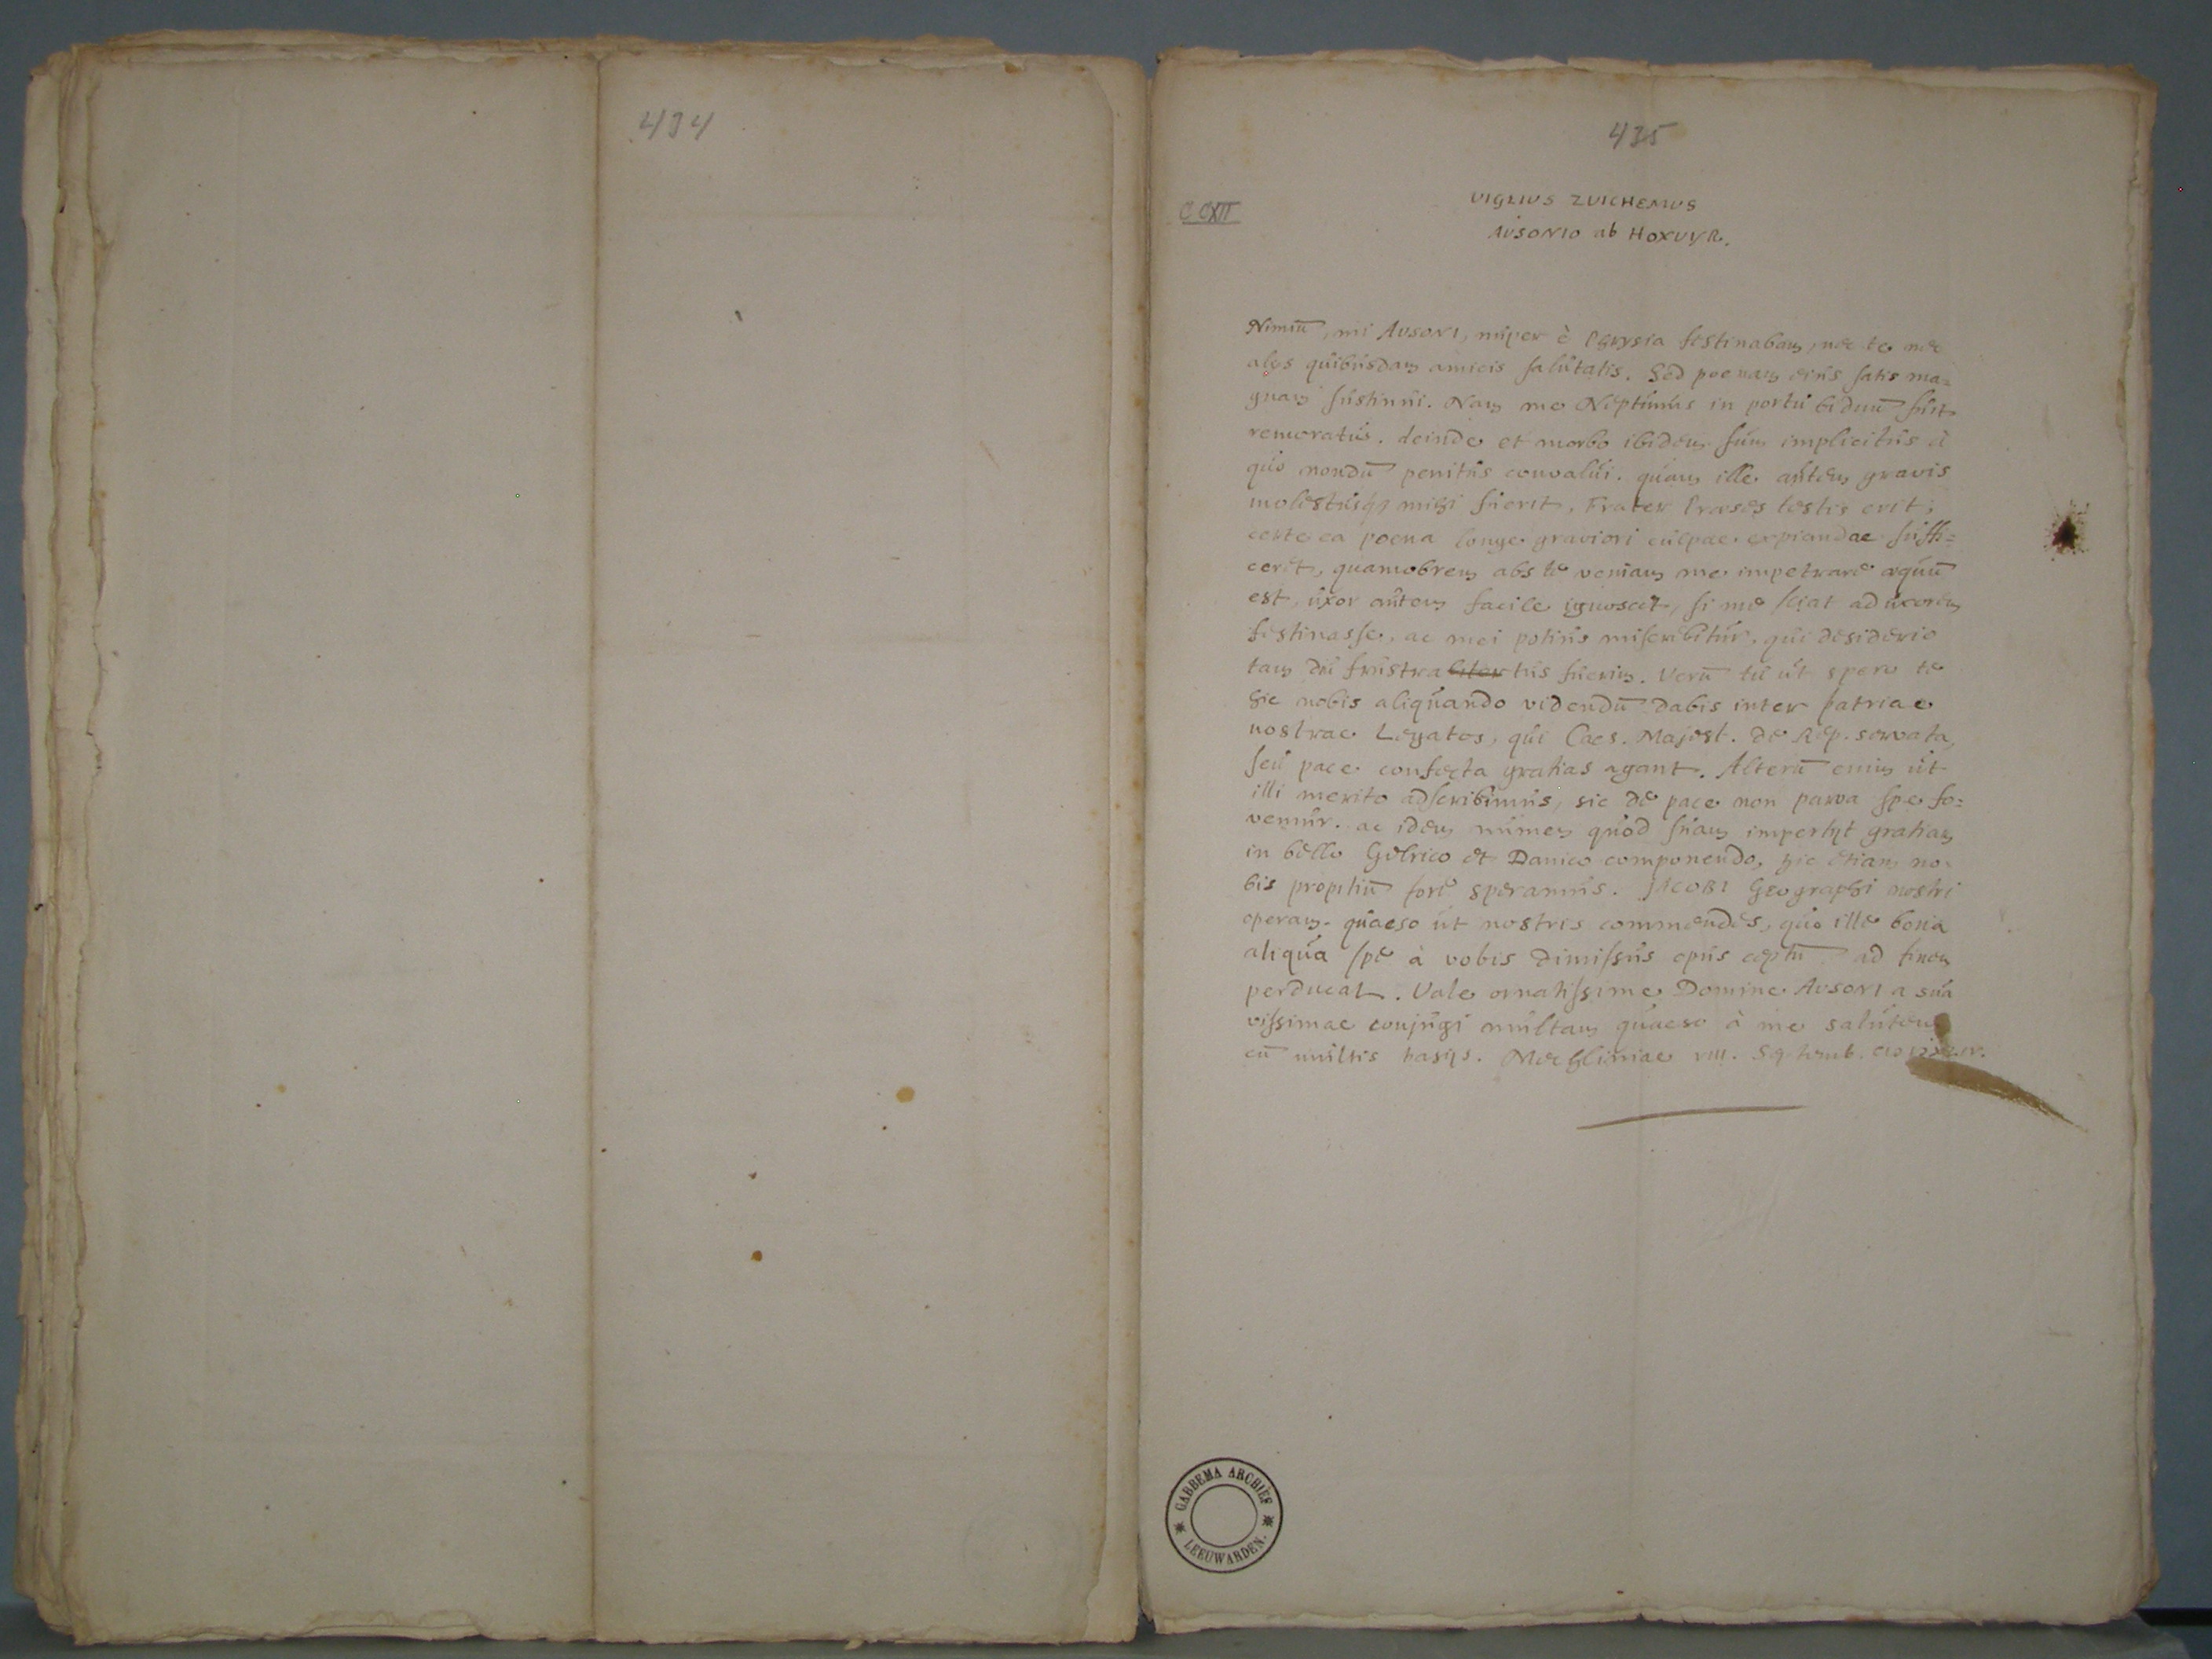 434
435
CCXII
VIGLIUS ZUICHEMUS
AUSONIO ab HOXUYR.
Nimiū, mi AUSONI, nuper è Phrysia festinabam, nec te nec
alijs quibusdam amicis salutatis. Sed poenam eius satis ma=
gnam sustinui. Nam me Neptunus in portu biduū fuit
remoratus. deinde et morbo ibidem sum implicitus à
quo nondū penitus convalui. quam ille autem gravis
molestusq; mihi fuerit, Frater Praeses testis erit;
certe ea poena longe graviori culpae expiandae suffi=
cerit, quamobrem abs te veniam me impetrare aequū
est, uxor autem facile ignoscet, si me sciat ad uxorem
festinasse. ac mei potius miserebitur, qui desiderio
tam diu frustra tus fuerim. Verū tu ut spero te
hic nobis aliquando videndū dabis inter patriae
nostrae Legatos, qui Caes. Majest. de Rep. servata,
seu pace confecta gratias agant. Alterū enim ut
illi merito adscribimus, sic de pace non parva spe fo=
vemur. ac idem numen quod suam impertijt gratiam
in bello Gelrico et Danico componendo, hic etiam no=
bis propitiū fore speramus. JACOBI Geographi nostri
operam quaeso ut nostris commendes, quo ille bona
aliqua spe à vobis dimissus opus ceptū ad finem
perducat. Vale ornatissime Domine AUSONI a sua
vissimae conjugi multam quaeso à me salutem
cū multis basijs. Mechliniae VIII. Septemb.
GABBEMA ARCHIEF
LEEUWARDEN.